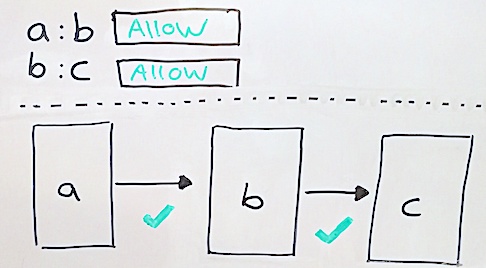 a:b ALLOW
b:c ALLOW
a
b
c